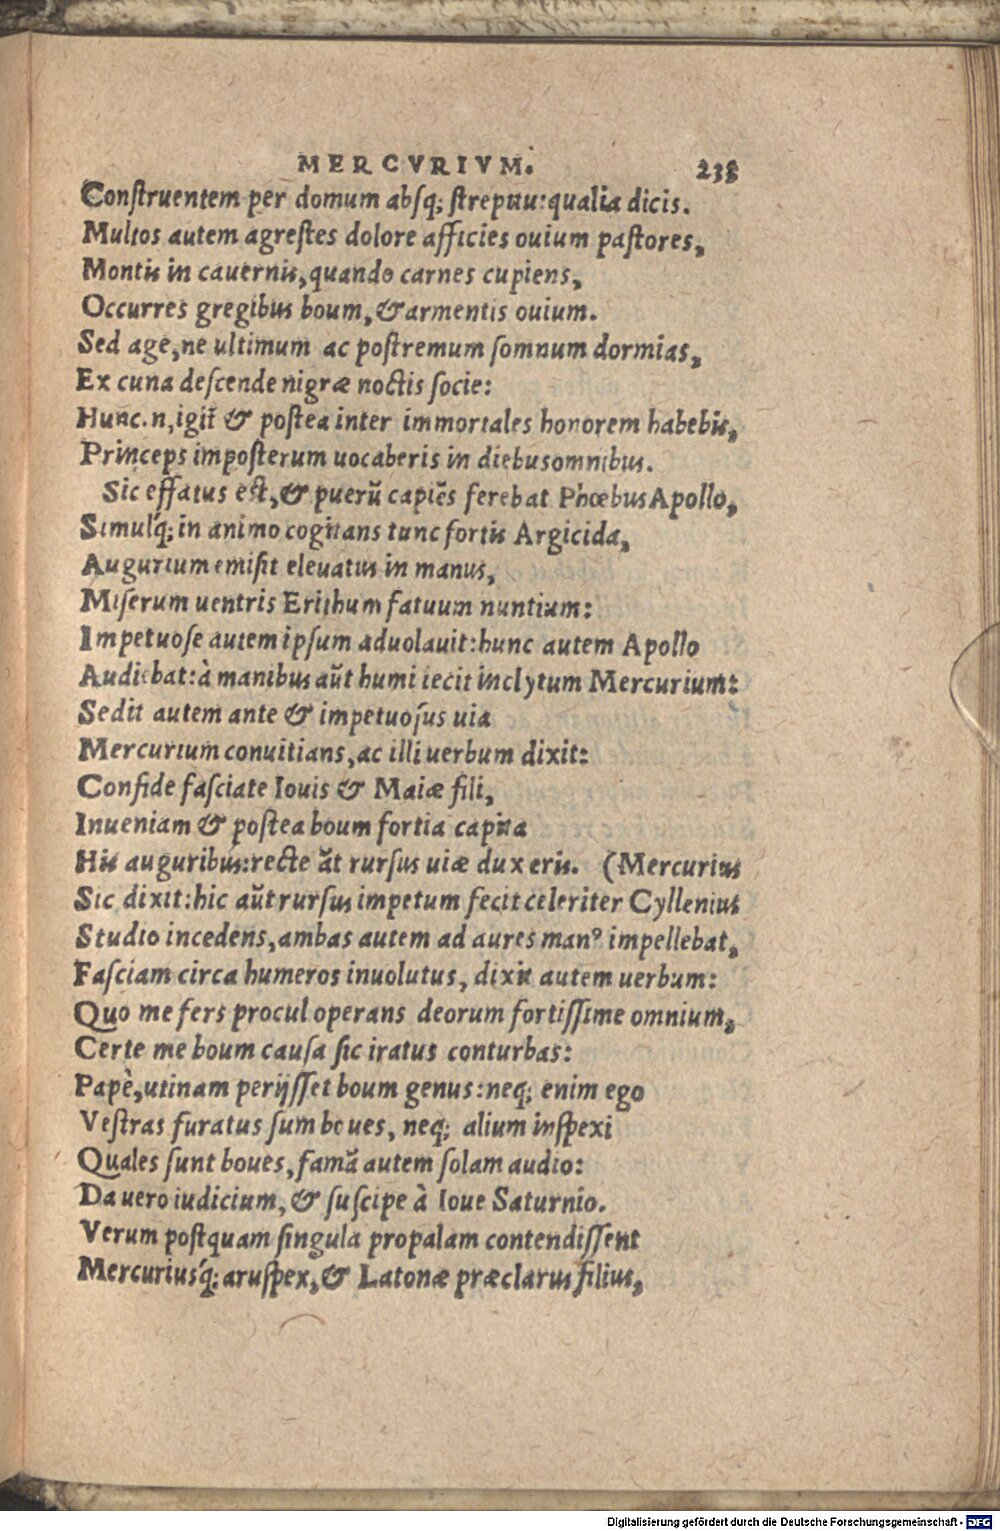 MERCVRIVM. 238
Conſtruentem per domum abſq; ſtrepitu: qualia dicis.
Multos autem agreſtes dolore afficies ouium paſtores,
Montis in cauernis, quando carnes cupiens,
Occurres gregibus boum, & armentis ouium.
Sed age, ne ultimum ac poſtremum ſomnum dormias,
Ex cuna deſcende nigræ noctis ſocie:
Hunc.n, igit̃ & poſtea inter immortales honorem habebis,
Princeps impoſterum uocaberis in diebus omnibus.
Sic effatus eſt, & puerũ capiẽs ferebat Phœbus Apollo,
Simulq́; in animo cogitans tunc fortis Argicida,
Augurium emiſit eleuatus in manus,
Miſerum uentris Erithum fatuum nuntium:
Impetuoſe autem ipſum aduolauit: hunc autem Apollo
Audiebat: à manibus aũt humi iecit inclytum Mercurium:
Sedit autem ante & impetuoſus uia
Mercurium conuitians, ac illi uerbum dixit:
Confide faſciate Iouis & Maiæ fili,
Inueniam & poſtea boum fortia capita
His auguribus: recte ãt rurſus uiæ dux eris. (Mercurius
Sic dixit: hic aũt rurſus impetum fecit celeriter Cyllenius
Studio incedens, ambas autem ad aures manꝰ impellebat,
Faſciam circa humeros inuolutus, dixit autem uerbum:
Quo me fers procul operans deorum fortiſſime omnium,
Certe me boum cauſa ſic iratus conturbas:
Papè, utinam perijſſet boum genus: neq; enim ego
Veſtras furatus ſum boues, neq; alium inſpexi
Quales ſunt boues, famã autem ſolam audio:
Da uero iudicium, & ſuſcipe à Ioue Saturnio.
Verum poſtquam ſingula propalam contendiſſent
Mercuriusq́; aruſpex, & Latonæ præclarus filius,
Digitalisierung gefördert durch die Deutsche Forschungsgemeinschaft - DFG